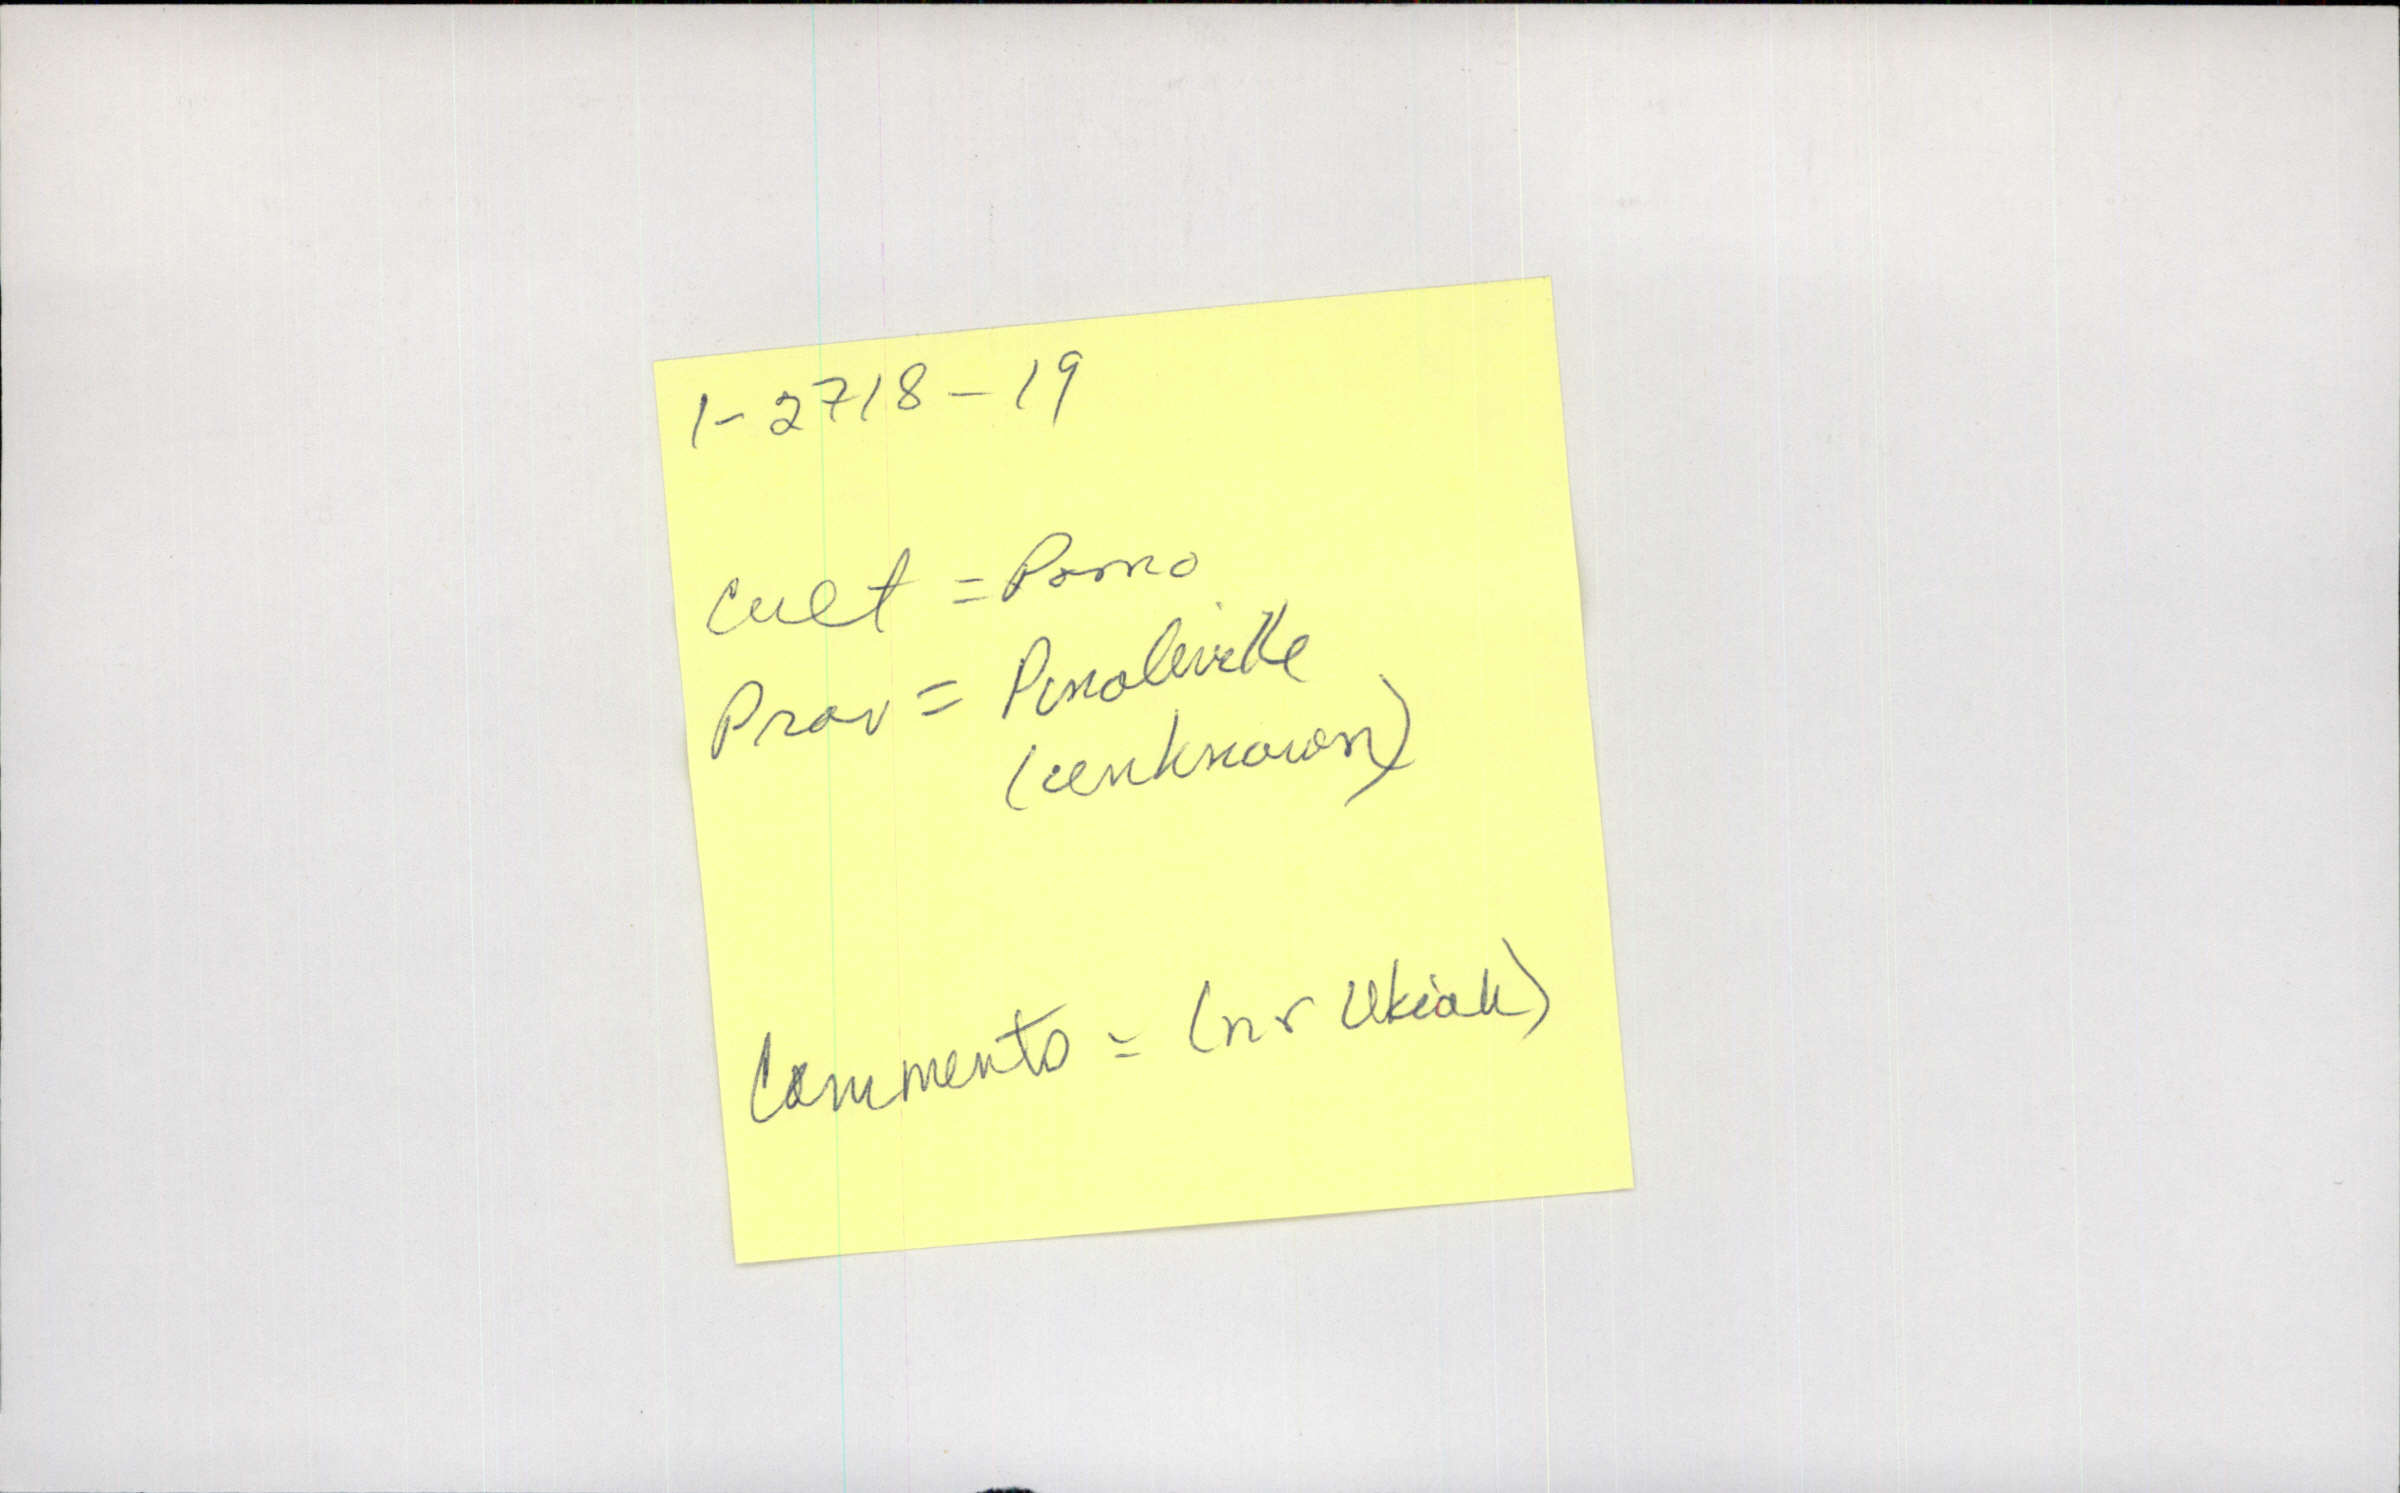 1-2718-19
Cult = Pomo
Prov = Pinoleville
(unknown)
Comments = (nr Ukiah)